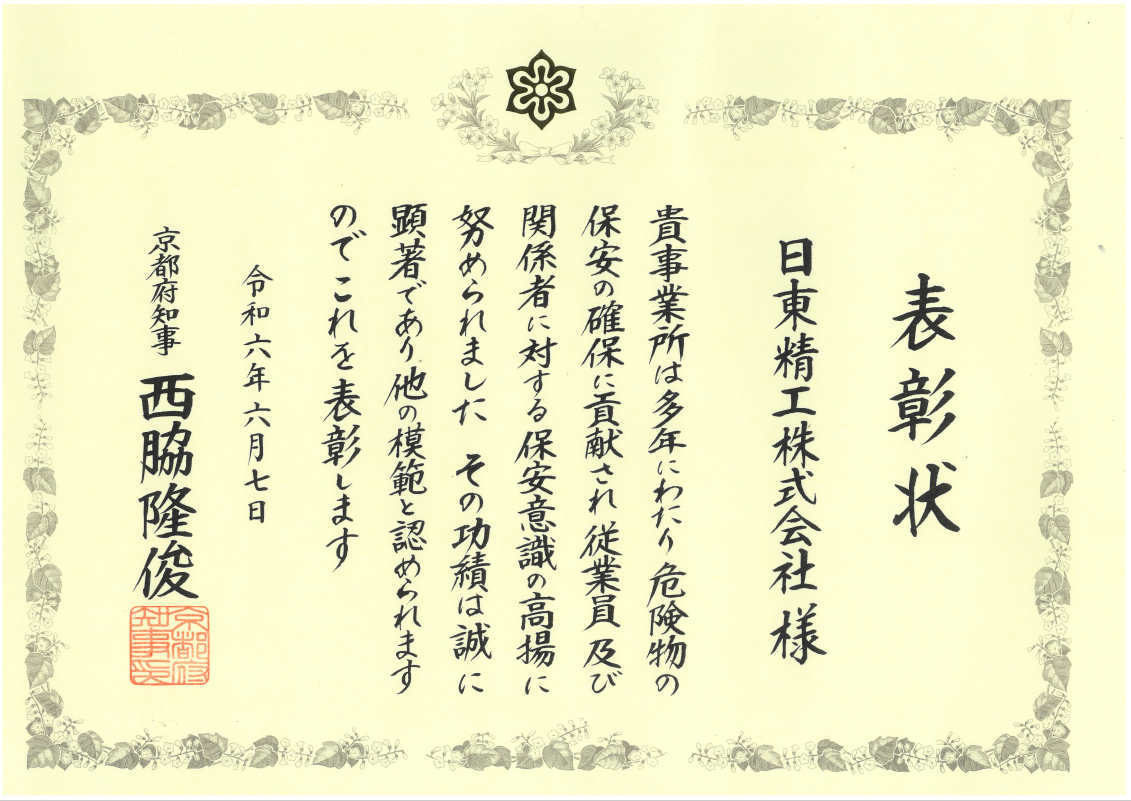 表彰状
日東精工株式会社 様
貴事業所は多年にわたり危険物の
保安の確保に貢献され従業員及び
関係者に対する保安意識の高揚に
努められました その功績は誠に
顕著であり他の模範と認められます
のでこれを表彰します
令和六年六月七日
京都府知事 西脇隆俊
京都府
知事印